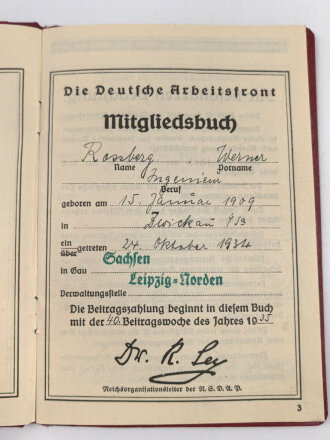 Die Deutsche Arbeitsfront
Mitgliedsbuch
Rossberg, Werner
Name Vorname
Ingenieur
Beruf
geboren am 15. Januar 1909
in Zwickau i/Sa
ein
über getreten 24. Oktober 1934
Sachsen
in Gau
Leipzig-Norden
Verwaltungsstelle
Die Beitragszahlung beginnt in diesem Buch
mit der 40. Beitragswoche des Jahres 1935
Dr. R. Ley
Reichsorganisationsleiter der N.S.D.A.P.
3